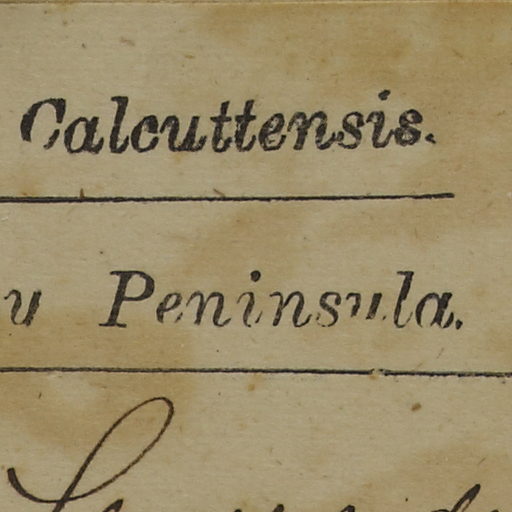 Calcuttensis.
u Peninsula.